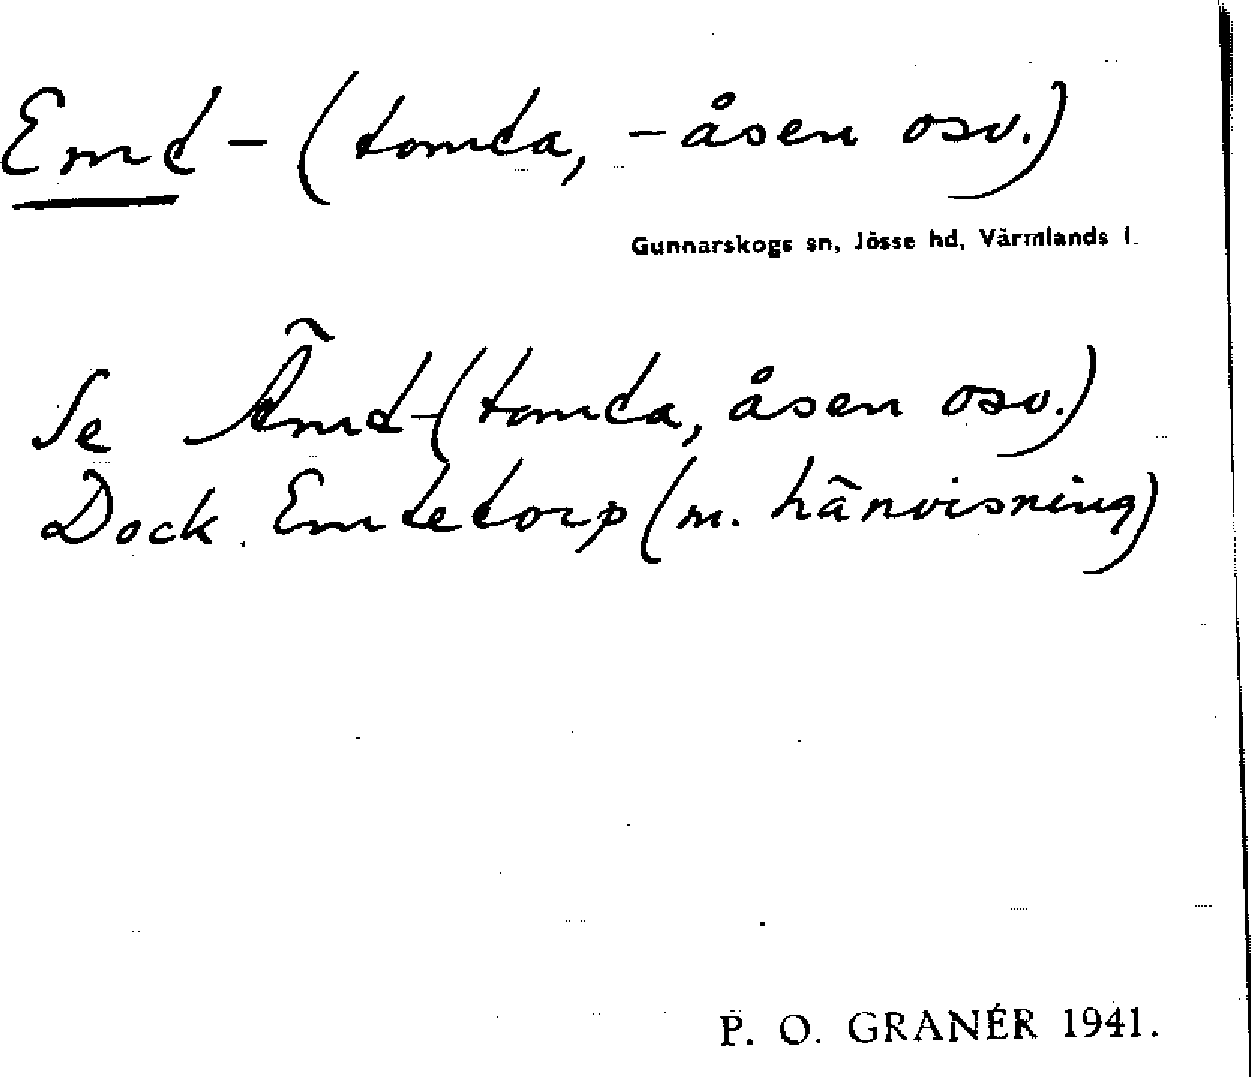 Emt - (tomta, - åsen osv.)
Gunnarskogs sn, Jösse hd, Värmlands l.
Se Ämt-(tomta, åsen osv.)
Dock Emtetorp (m. hänvisning)
P. O. GRANÉR 1941.